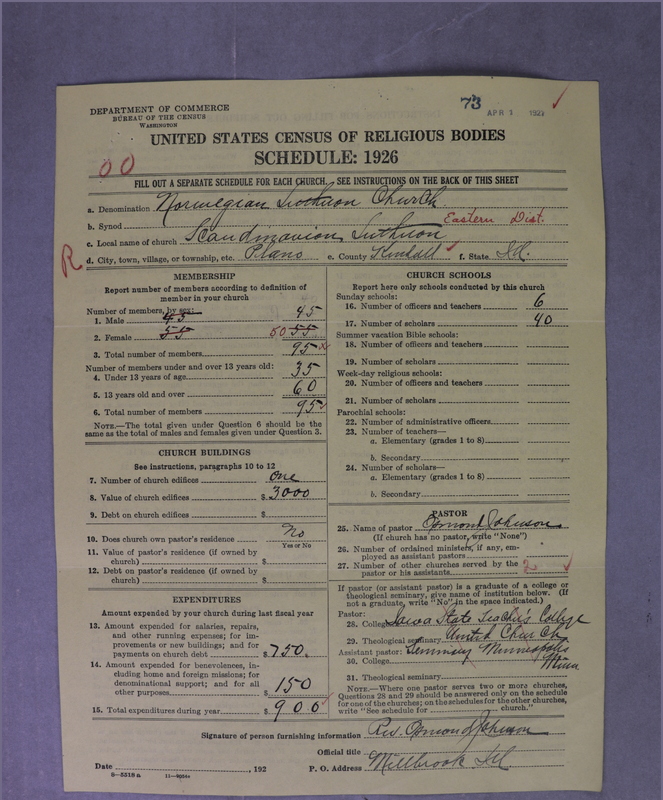 73 APR 1 192
DEPARTMENT OF COMMERCE
BUREAU OF THE CENSUS
WASHINGTON
UNITED STATES CENSUS OF RELIGIOUS BODIES
SCHEDULE: 1926
00
FILL OUT A SEPARATE SCHEDULE FOR EACH CHURCH. SEE INSTRUCTIONS ON THE BACK OF THIS SHEET
a. Denomination Norwegian Lutheran Church
b. Synod Eastern Dist.
c. Local name of church Scandinavian Lutheran
R
d. City, town, village, or township, etc. Plano e. County Kendall f. State Ill.
MEMBERSHIP
Report number of members according to definition of
member in your church
Number of members, by sex:
1. Male 45 45
2. Female 55 50 55
3. Total number of members 95
Number of members under and over 13 years old:
4. Under 13 years of age 35
5. 13 years old and over 60
6. Total number of members 95
NOTE.—The total given under Question 6 should be the
same as the total of males and females given under Question 3.
CHURCH BUILDINGS
See instructions, paragraphs 10 to 12
7. Number of church edifices one
8. Value of church edifices $ 3000
9. Debt on church edifices $
10. Does church own pastor's residence No
Yes or No
11. Value of pastor's residence (if owned by
church) $
12. Debt on pastor's residence (if owned by
church) $
EXPENDITURES
Amount expended by your church during last fiscal year
13. Amount expended for salaries, repairs,
and other running expenses; for im-
provements or new buildings; and for
payments on church debt $ 750.
14. Amount expended for benevolences, in-
cluding home and foreign missions; for
denominational support; and for all
other purposes $ 150
15. Total expenditures during year $ 900
CHURCH SCHOOLS
Report here only schools conducted by this church
Sunday schools:
16. Number of officers and teachers 6
17. Number of scholars 40
Summer vacation Bible schools:
18. Number of officers and teachers
19. Number of scholars
Week-day religious schools:
20. Number of officers and teachers
21. Number of scholars
Parochial schools:
22. Number of administrative officers
23. Number of teachers—
a. Elementary (grades 1 to 8)
b. Secondary
24. Number of scholars—
a. Elementary (grades 1 to 8)
b. Secondary
PASTOR
25. Name of pastor Osmond Johnson
(If church has no pastor, write "None")
26. Number of ordained ministers, if any, em-
ployed as assistant pastors
27. Number of other churches served by the
pastor or his assistants 2
If pastor (or assistant pastor) is a graduate of a college or
theological seminary, give name of institution below. (If
not a graduate, write "No" in the space indicated.)
Pastor:
28. College Iowa State Teacher's College
29. Theological seminary United Church
Assistant pastor: Seminary Minneapolis
30. College Minn
31. Theological seminary
NOTE.—Where one pastor serves two or more churches,
Questions 28 and 29 should be answered only on the schedule
for one of the churches; on the schedules for the other churches,
write "See schedule for church."
Signature of person furnishing information Rev. Osmond Johnson
Official title
Date , 192 P. O. Address Millbrook Ill